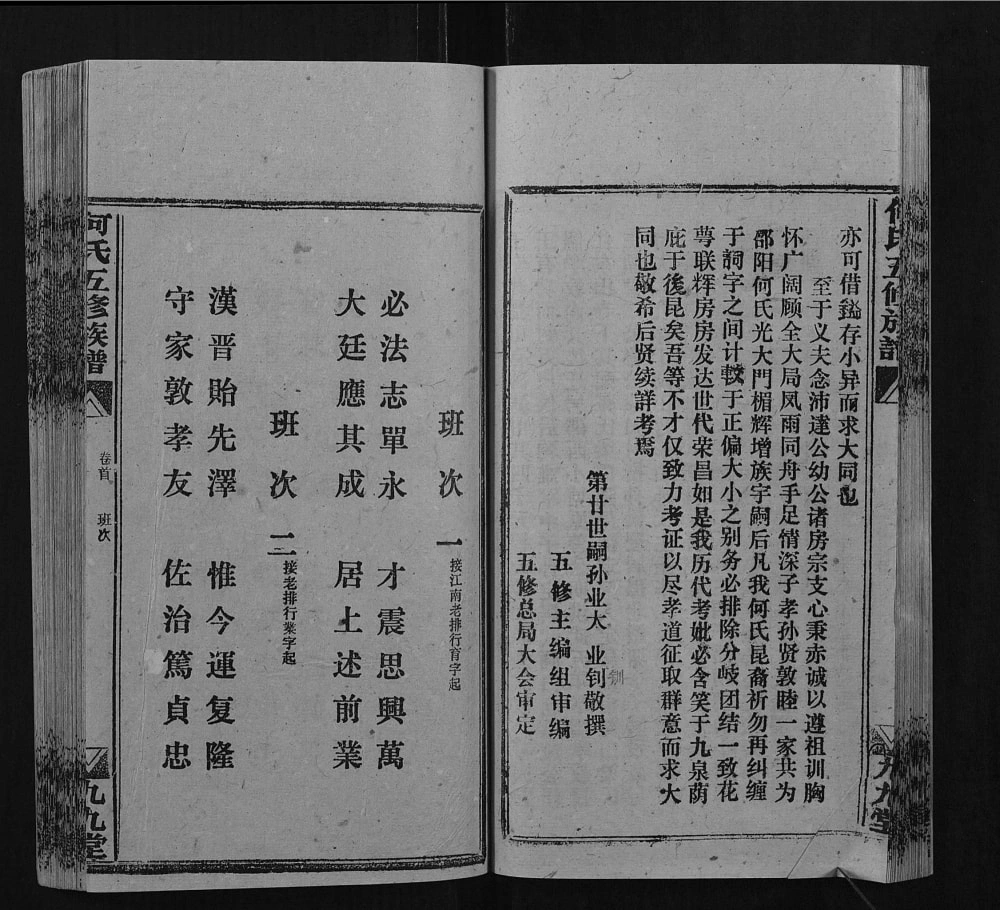 何氏五修族譜
九九堂
亦可借鎰存小异而求大同也
至于义夫念沛達公幼公诸房宗支心秉赤诚以遵祖训胸
怀广阔顾全大局风雨同舟手足情深子孝孙贤敦睦一家共为
邵阳何氏光大門楣辉增族宇嗣后凡我何氏昆裔祈勿再纠缠
于詞字之间计較于正偏大小之别务必排除分岐团结一致花
萼联辉房房发达世代荣昌如是我历代考妣必含笑于九泉荫
庇于後昆矣吾等不才仅致力考证以尽孝道征取群意而求大
同也敬希后贤续詳考焉
第廿世嗣孙业大 业钊敬撰
钏
五修主编组审编
五修总局大会审定
班次一 接江南老排行育字起
必法志單永 才震思興萬
大廷應其成 居土述前業
班次二 接老排行業字起
漢晋貽先澤 惟今運复隆
守家敦孝友 佐治篤貞忠
何氏五修族譜
卷首 班次
九九堂